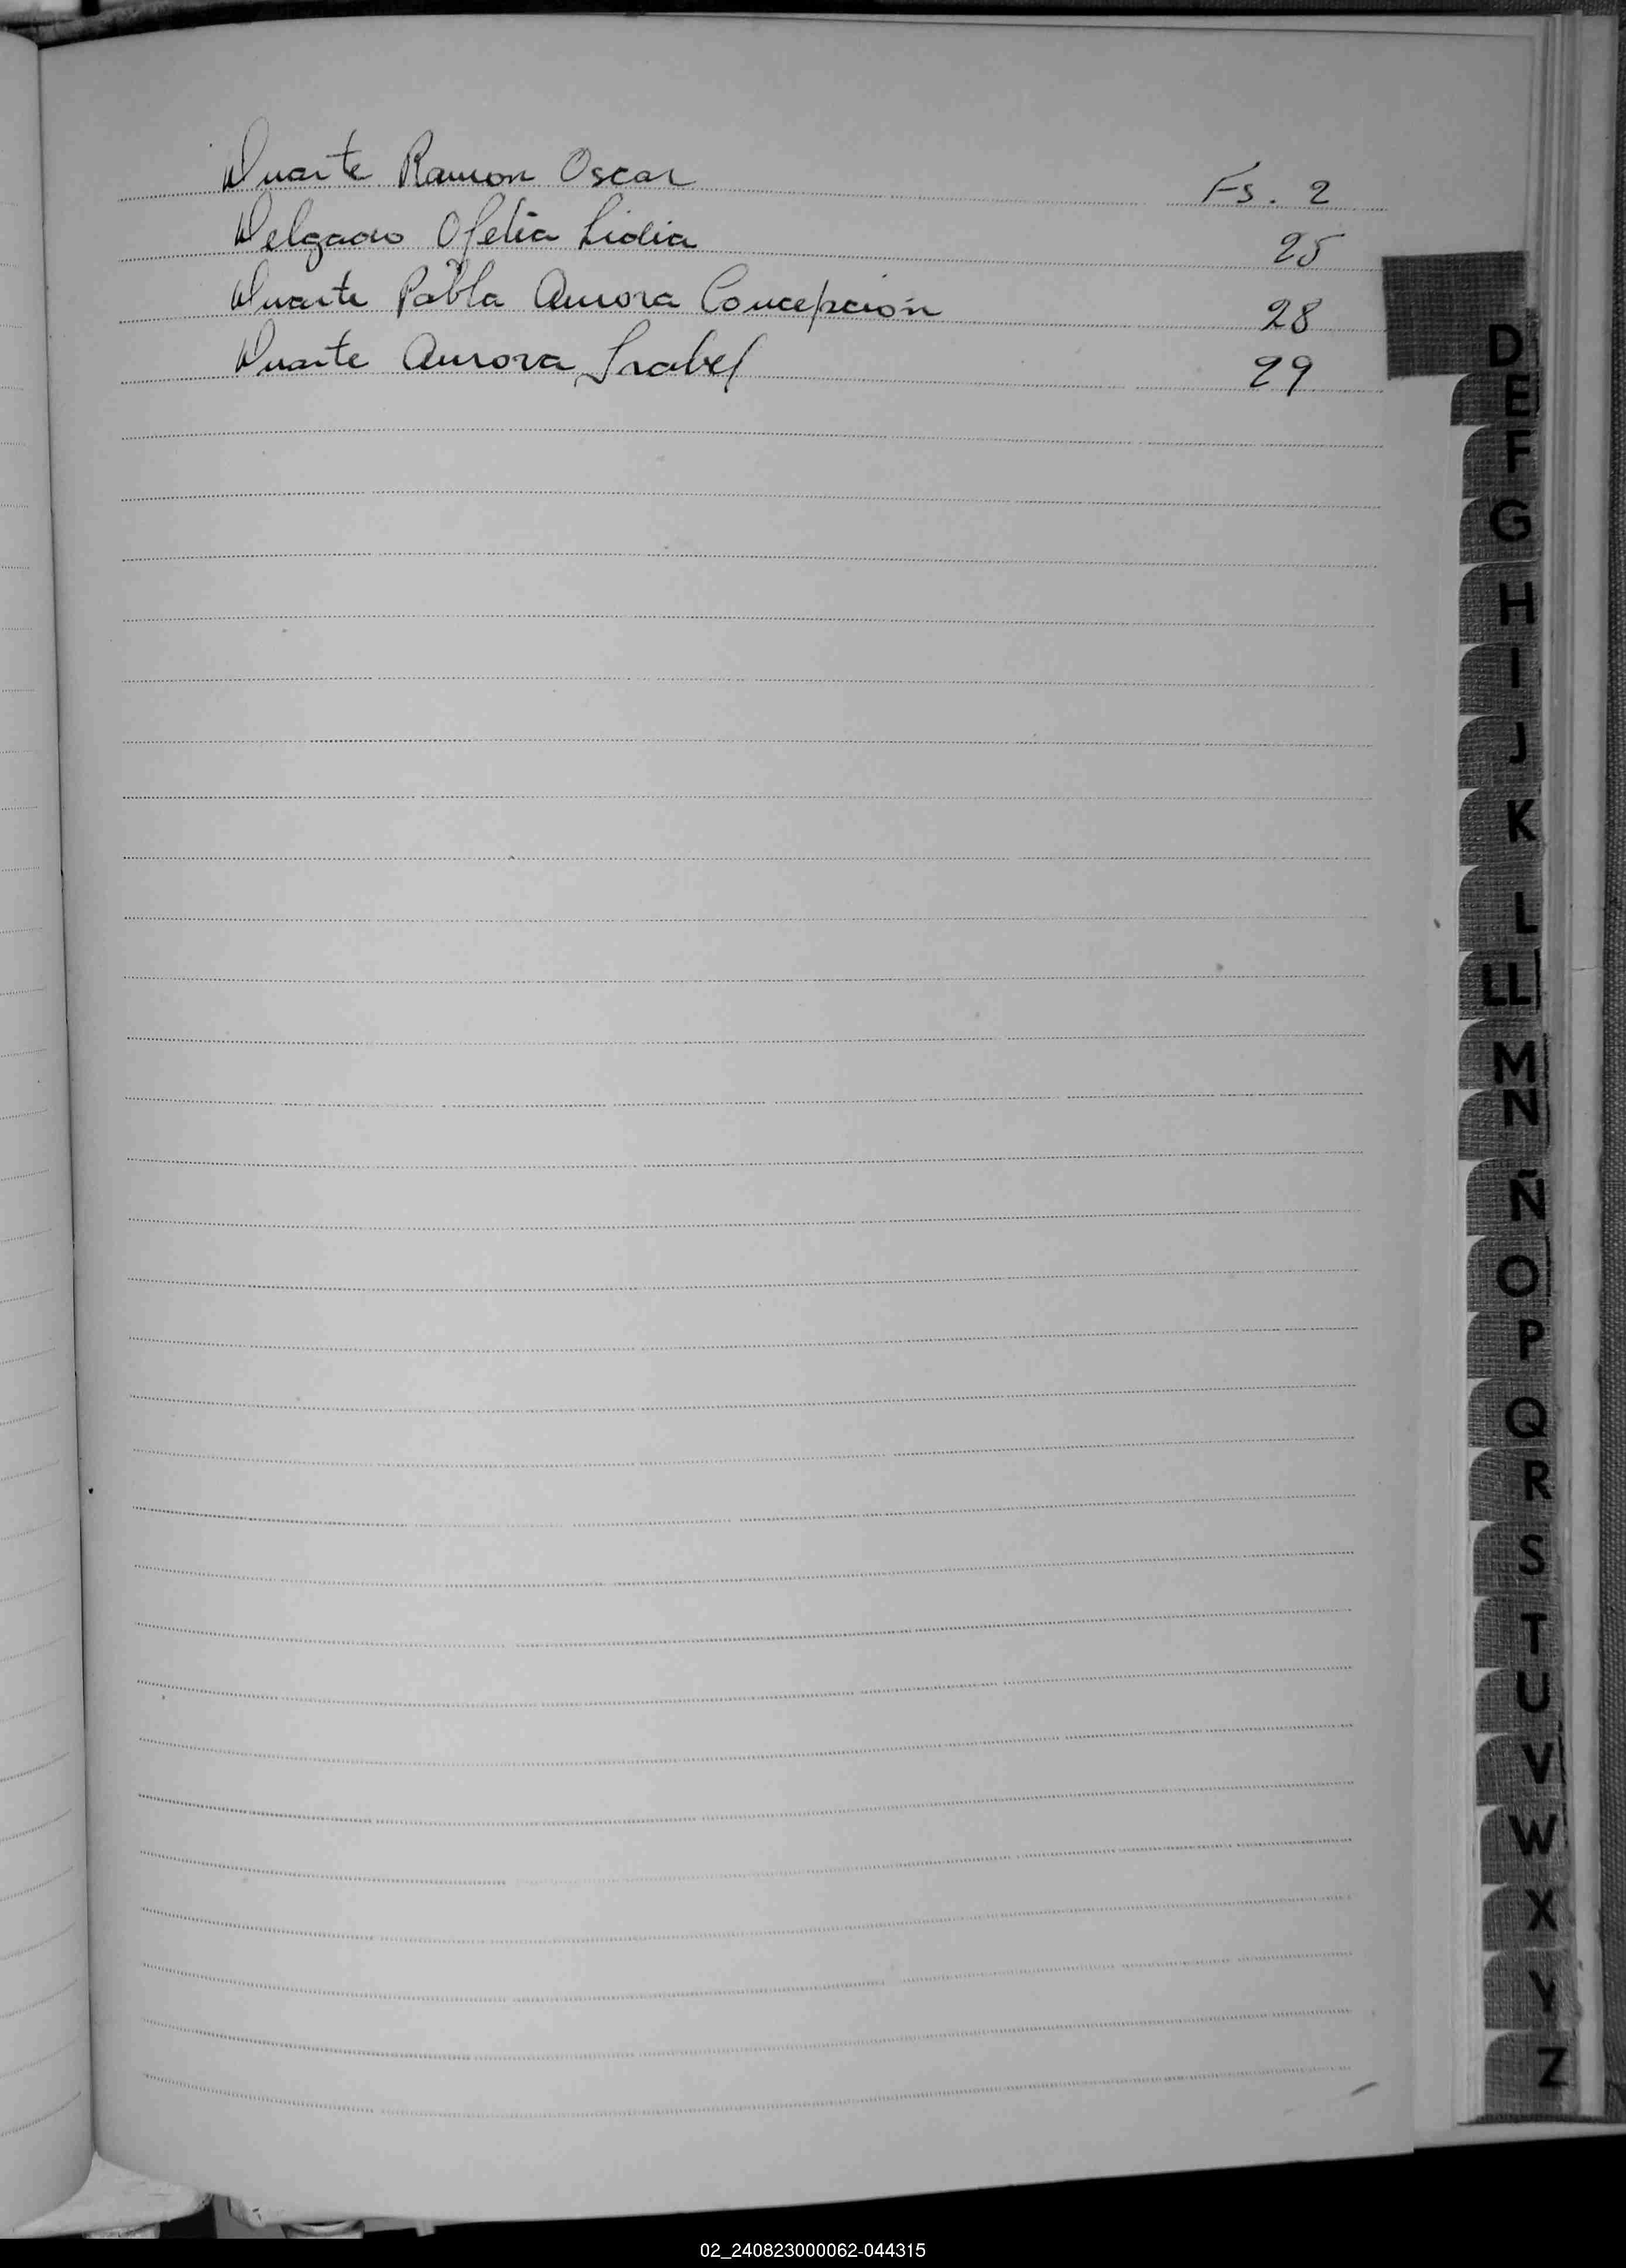 Duarte Ramon Oscar Fs. 2
Delgado Ofelia Lidia 25
Duarte Pabla Aurora Concepción 28
Duarte Aurora Isabel 29
D
E
F
G
H
I
J
K
L
LL
M
N
Ñ
O
P
Q
R
S
T
U
V
W
X
Y
Z
02_240823000062-044315